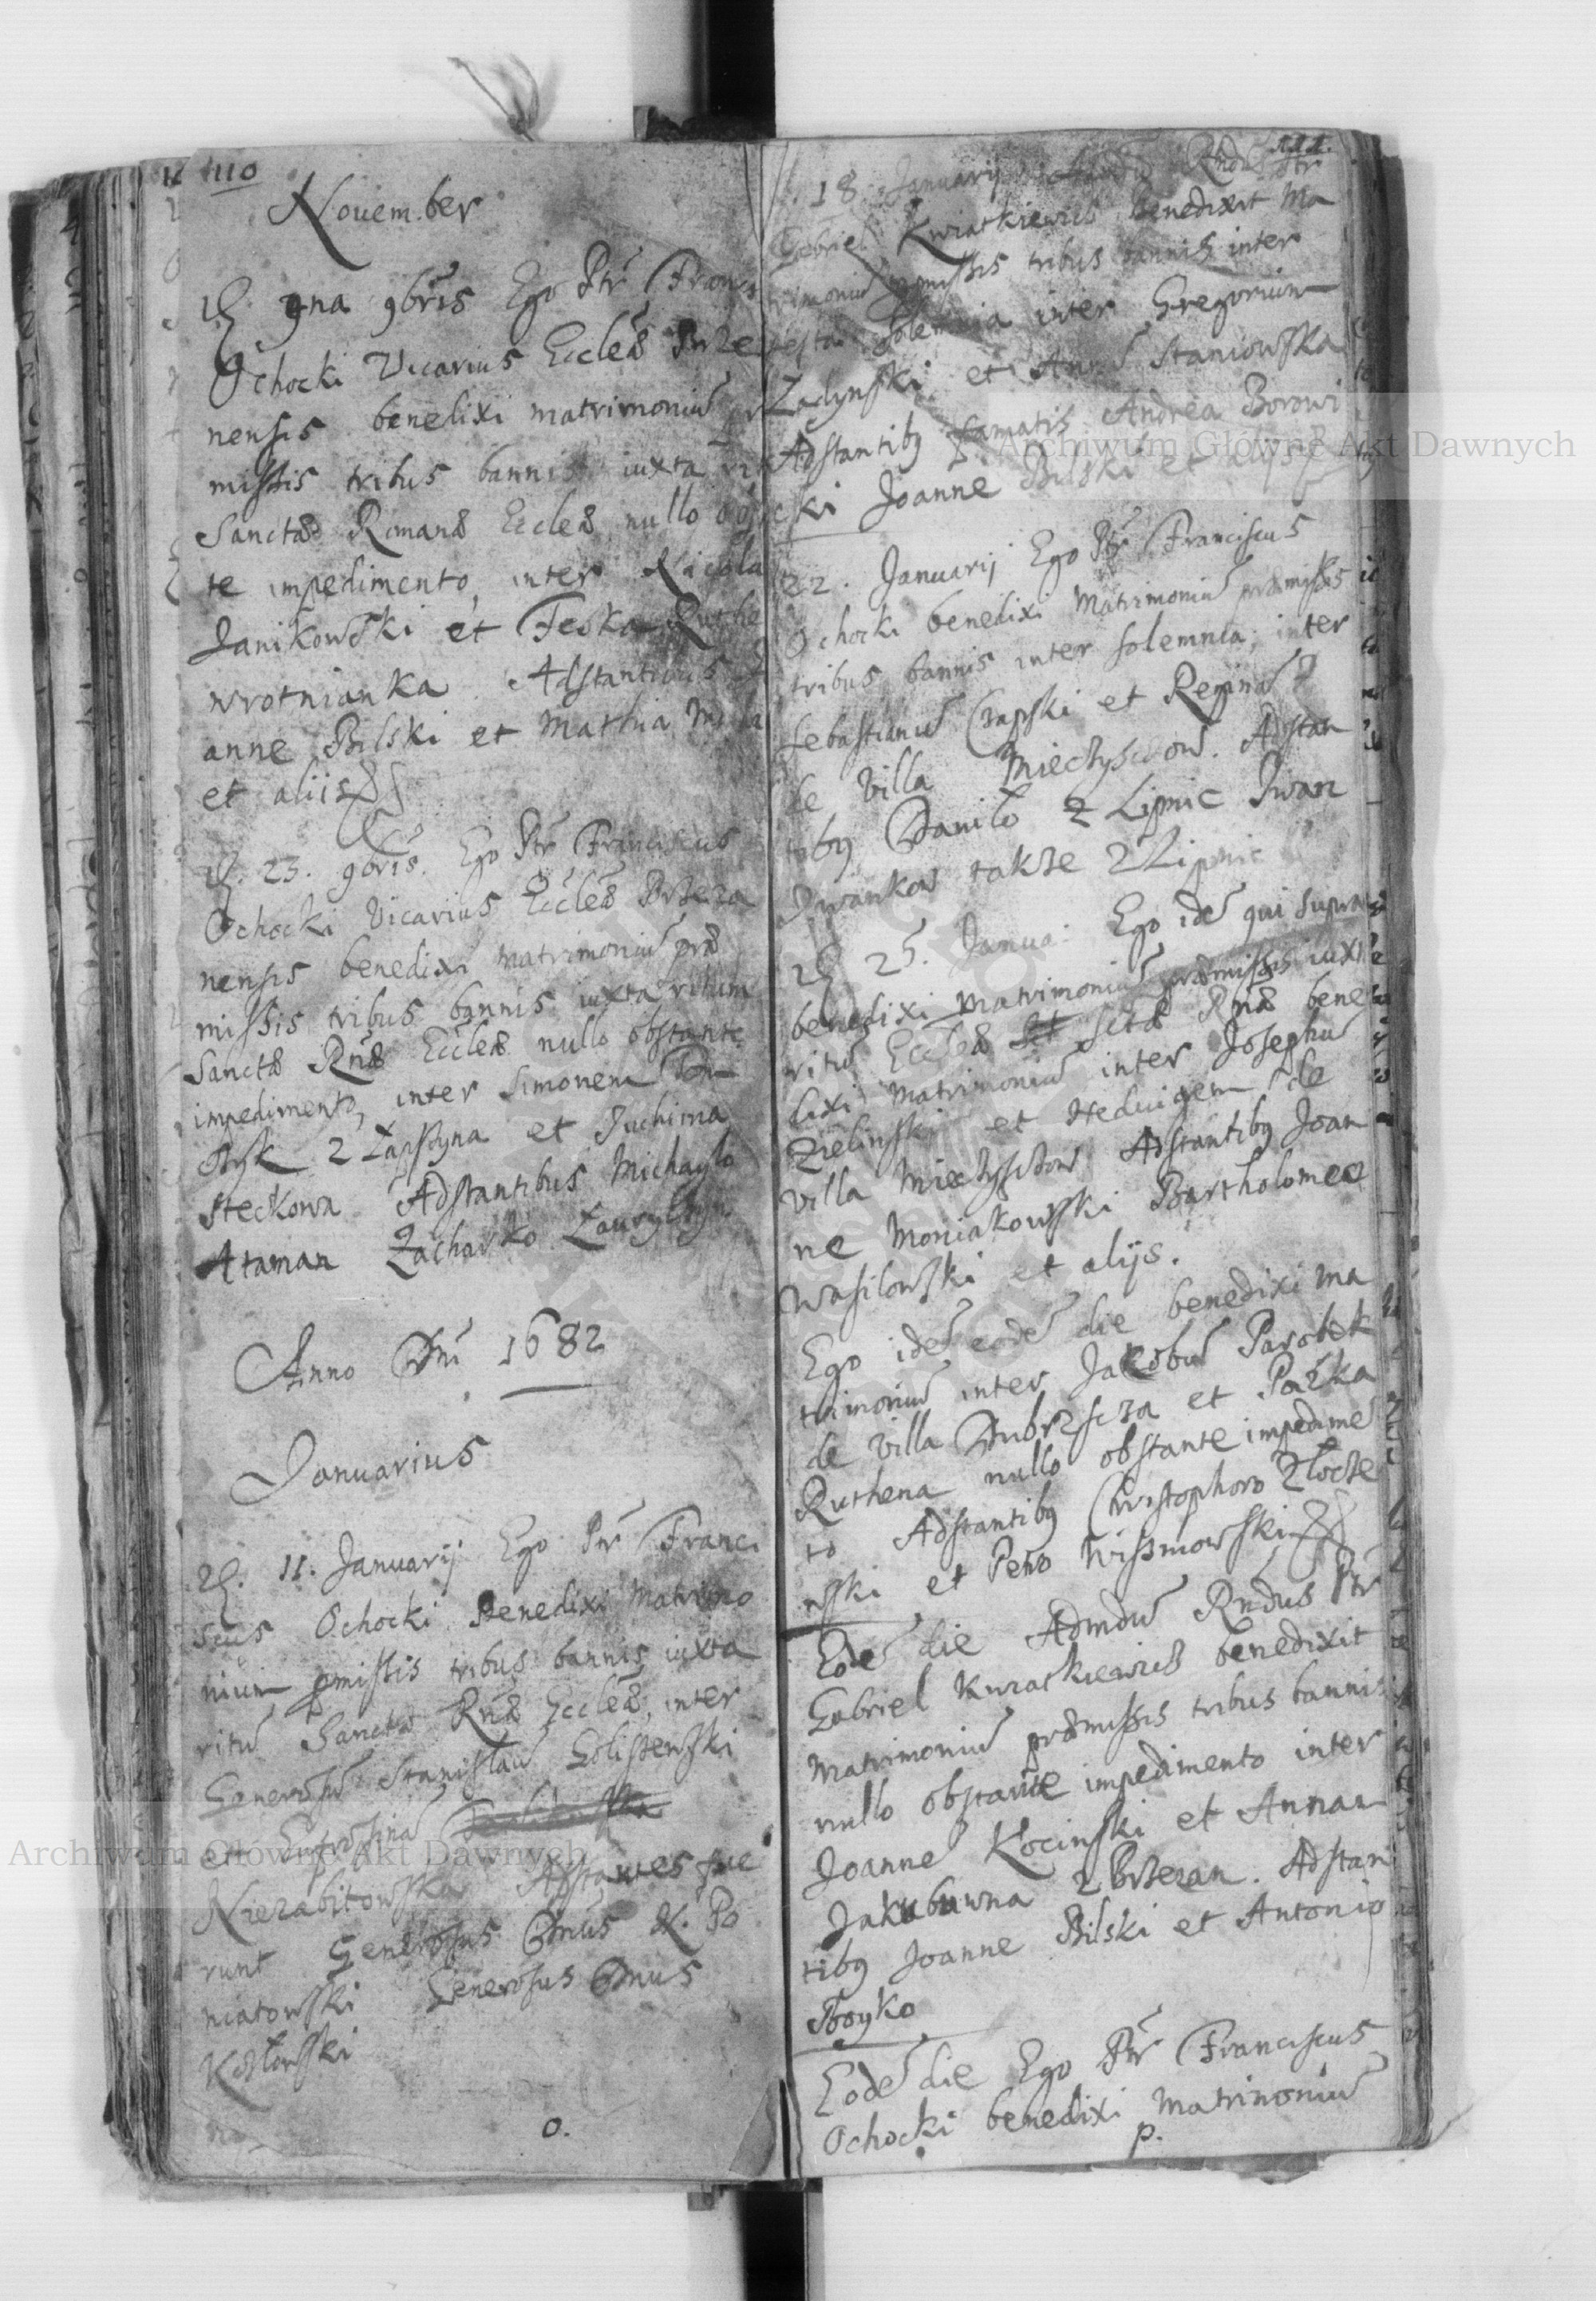 110
Nouember
D. 9na 9bris Ego Ptr Franci
Ochocki Vicarius Eccleae Brze
nensis benedixi matrimoniu prae
missis tribus bannis iuxta rit
Sanctae Romanae Eccleae nullo obstan
te impedimento, inter Nicola
Janikowski et Feska Ruthe
wrotnianka Adstantibus Jo
anne Bilski et Mathia
et aliis
D. 23. 9bris. Ego Ptr Franciscus
Ochocki Vicarius Eccleae Brzeza
nensis benedixi matrimoniu prae
missis tribus bannis iuxta ritum
Sanctae Rnae Eccleae nullo obstante
impedimento, inter Simonem
z Lapszyna et Juchima
steckowa Adstantibus Michaylo
Ataman Zacharko
Anno Dni 1682
Januarius
D. 11. Januarij Ego Ptr Franci
scus Ochocki Benedixi Matrimo
nium pmissis tribus bannis iuxta
ritu Sanctae Rnae Eccleae, inter
Generosu Stanislau Golissewski
et Eufrosina
Niezabitowska Adstantes fue
runt Generosus Dnus N. Po
niatowski Generosus Dnus
Kozlowski
o.
111.
18 Januarij Admdu Rndus Ptr
Gabriel Kwiatkiewicz Benedixit Ma
trimoniu pmissis tribus bannis inter
festa solemnia inter Gregorium
Zadynski et Anna Staniowska
Adstantiby famatis Andrea Borowi
cki Joanne Bilski et alijs
22. Januarij Ego Ptr Franciscus
Ochocki benedixi Matrimoniu praemissis
tribus bannis inter solemnia, inter
Sebastianu Czapski et Regina
de Villa Miechysczow. Adstan
tiby Danilo z Lipnic Iwan
Iwankow takze z Lipnic
D 25. Janua: Ego ide qui supra
benedixi matrimoniu praemissis iuxt
ritu Eccleae St sctae Rnae bene
dixi matrimoniu inter Josephu
Zielinski et Heduigem de
villa Miechysczow Adstantiby Joan
ne Moniakowski Bartholomeo
Wasilowski et alijs.
Ego ide eode die benedixi ma
trimoniu inter Jakobu Parobek
de villa Dubrzscza et Pazka
Ruthena nullo obstante impedime
to Adstantiby Christophoro Zlocze
wski et Petro Wiszniowski
Eode die Admdu Rndus Ptr
Gabriel Kwiatkiewicz benedixit
Matrimoniu praemissis tribus bannis
nullo obstante impedimento inter
Joanne Kocinski et Annam
Jakubuwna z Brzezan. Adstan
tiby Joanne Bilski et Antonio
Boyko
Eode die Ego Ptr Franciscus
Ochocki benedixi Matrimoniu
p.
Archiwum Główne Akt Dawnych
Archiwum Główne Akt Dawnych